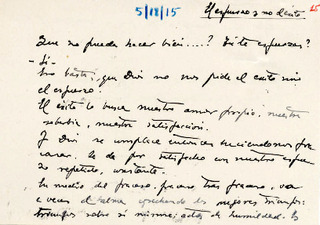 5/18/15 El esfuerzo y no el éxito 25
Que no puedes hacer bien....? Si te esfuerzas?
- Si.
Eso basta, que Dios no nos pide el exito sino
el esfuerzo.
El exito lo busca nuestro amor propio, nuestra
soberbia, nuestra satisfaccion.
Y Dios se complace entonces haciendonos fra
casar. Se da por satisfecho con nuestro esfuer
zo repetido, constante.
En medio del fracaso, fracaso tras fracaso, va
a veces el alma cosechando los mejores triunfos:
triunfos sobre si misma; actos de humildad. Es